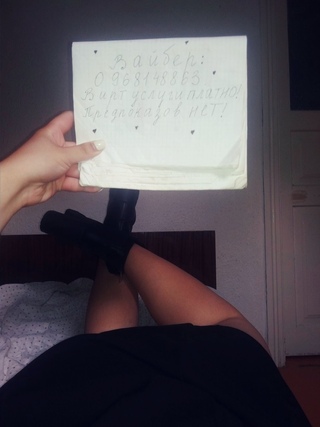 Вайбер:
0968148863
Вирт услуги платно!
Предпоказов нет!